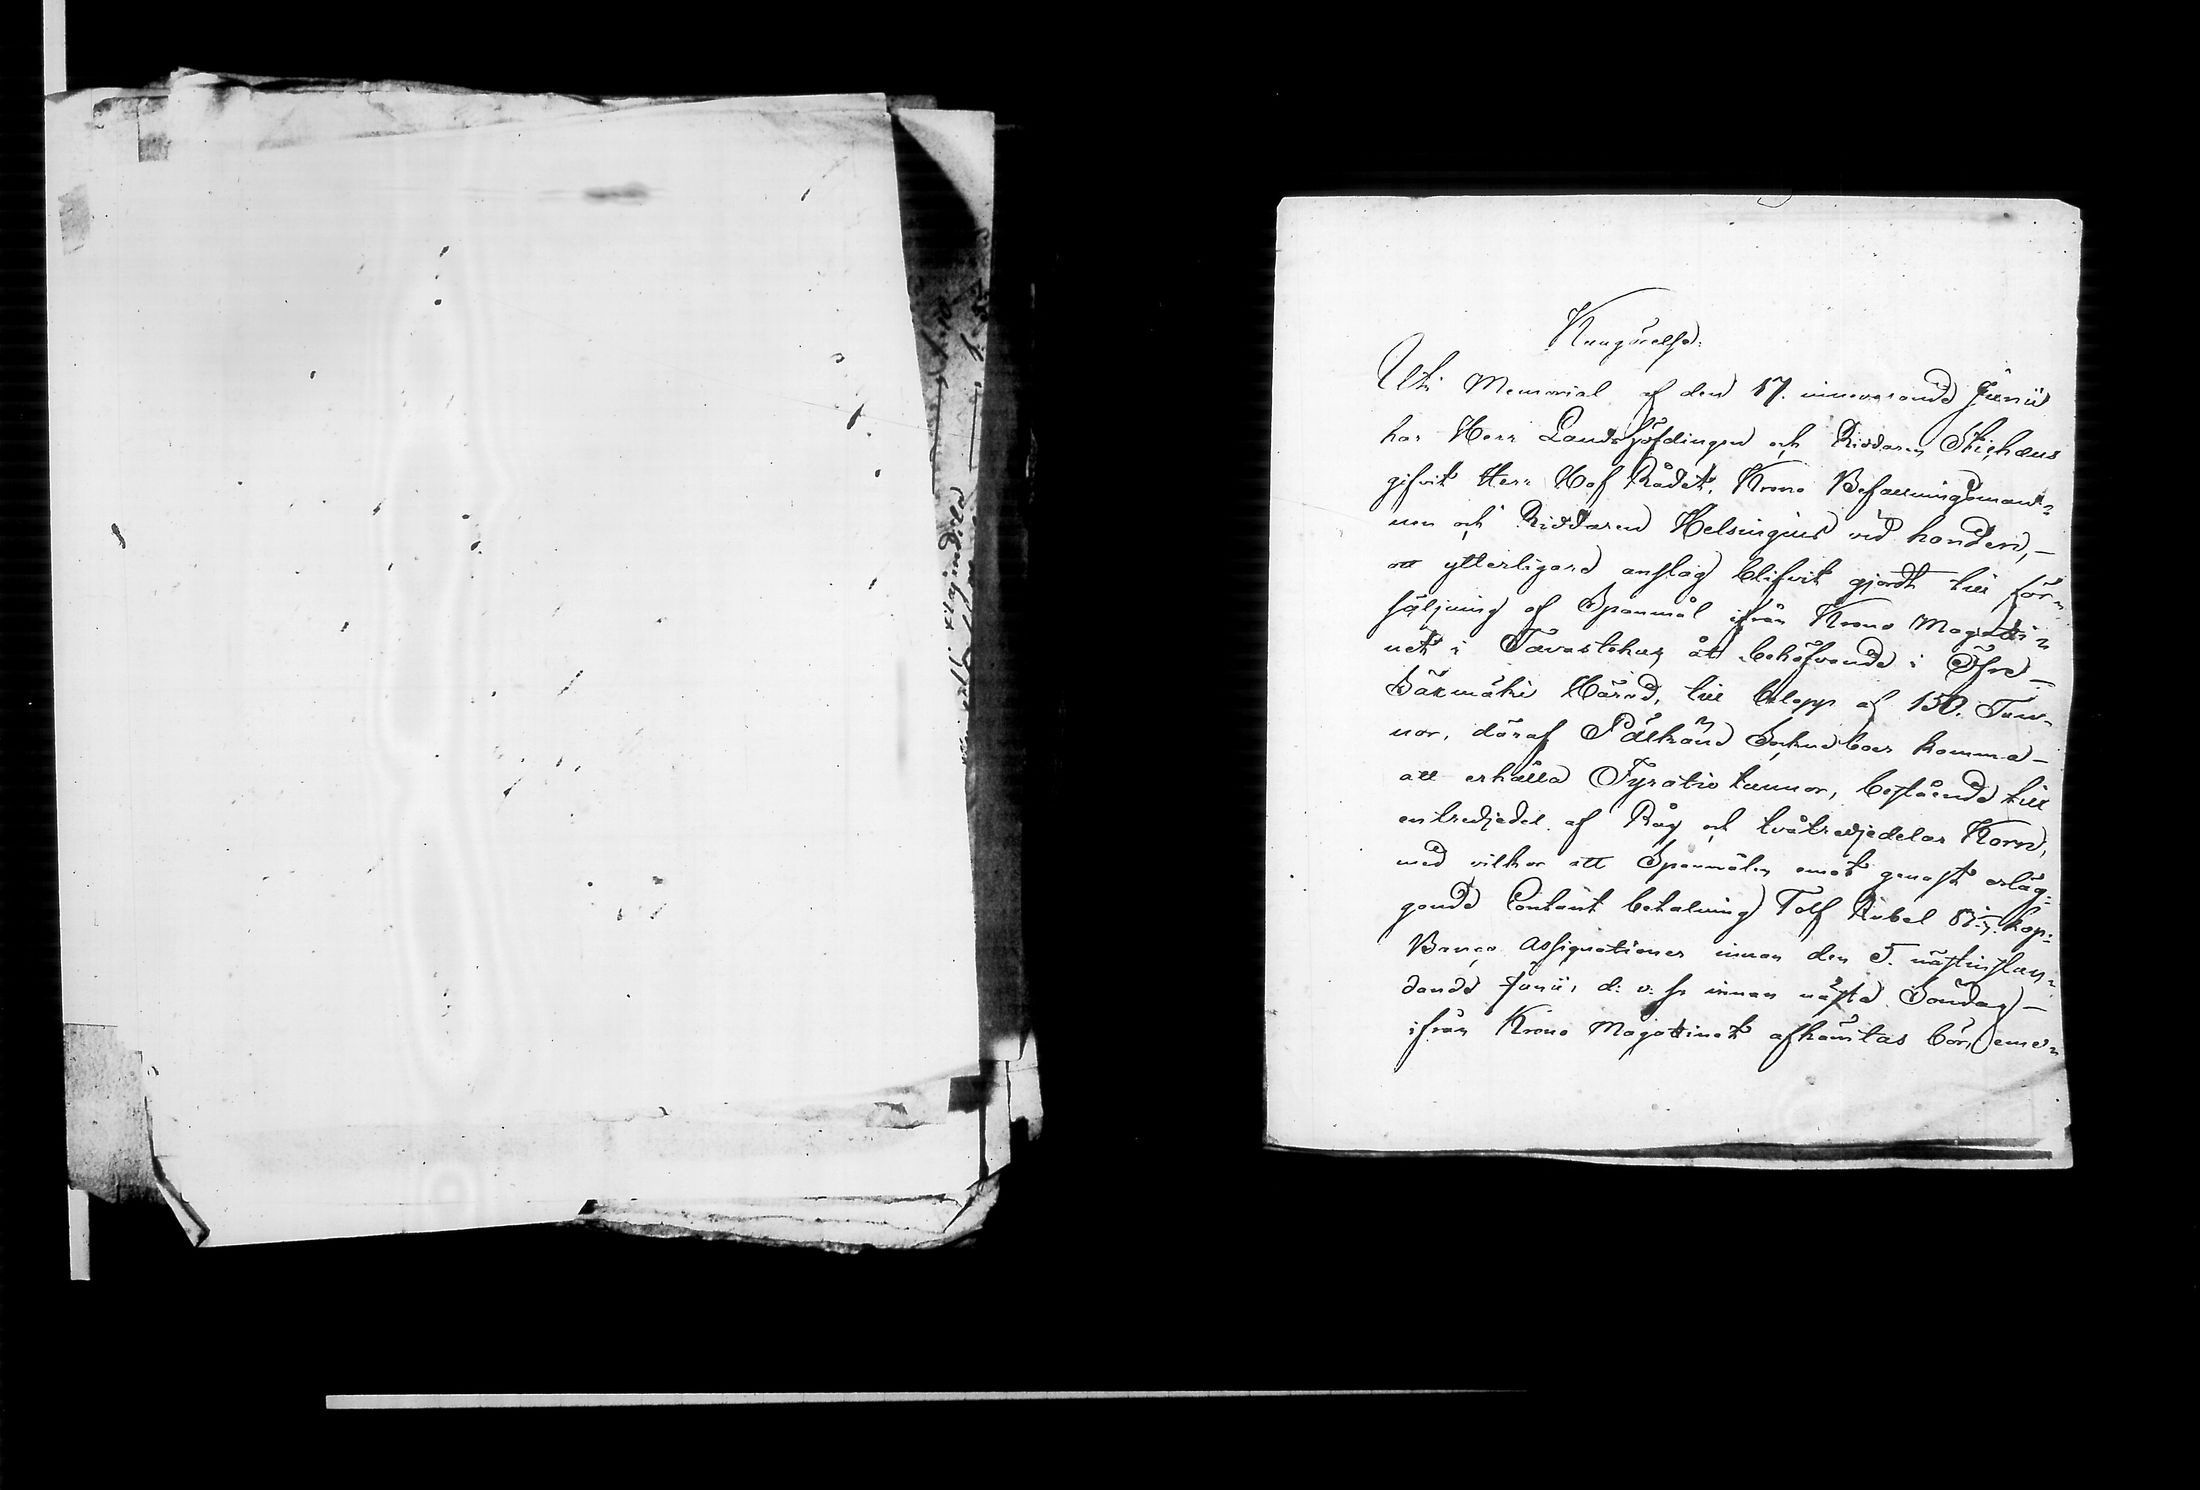 Kungörelse.
Uti Memorial af den 17. innevarande Junii
har Herr Landshöfdingen och Riddaren Stichæus
gifvit Herr Hof Rådet, Krono Befallningsman-
nen och Riddaren Helsingius vid handen, —
att ytterligare anslag blifvit gjordt till för-
säljning af Spanmål ifrån Krono Magazi-
net i Tavastehus åt behöfvande i Öfre —
Säxmäki Härad, till belopp af 150. Tun-
nor, däraf Pälkäne Sockneboer komma —
att erhålla Fyratio tunnor, bestående till
en tredjedel af Råg och tvåtredjedelar Korn,
med vilkor att Spannmålen emot genast erläg-
gande Contant betalning Tolf Rubel kop:
Banco Assignationer innan den 5. nästinstun-
dande Junii, d: v: s: innan nästa Söndag —
ifrån Krono Magazinet afhämtas bör,